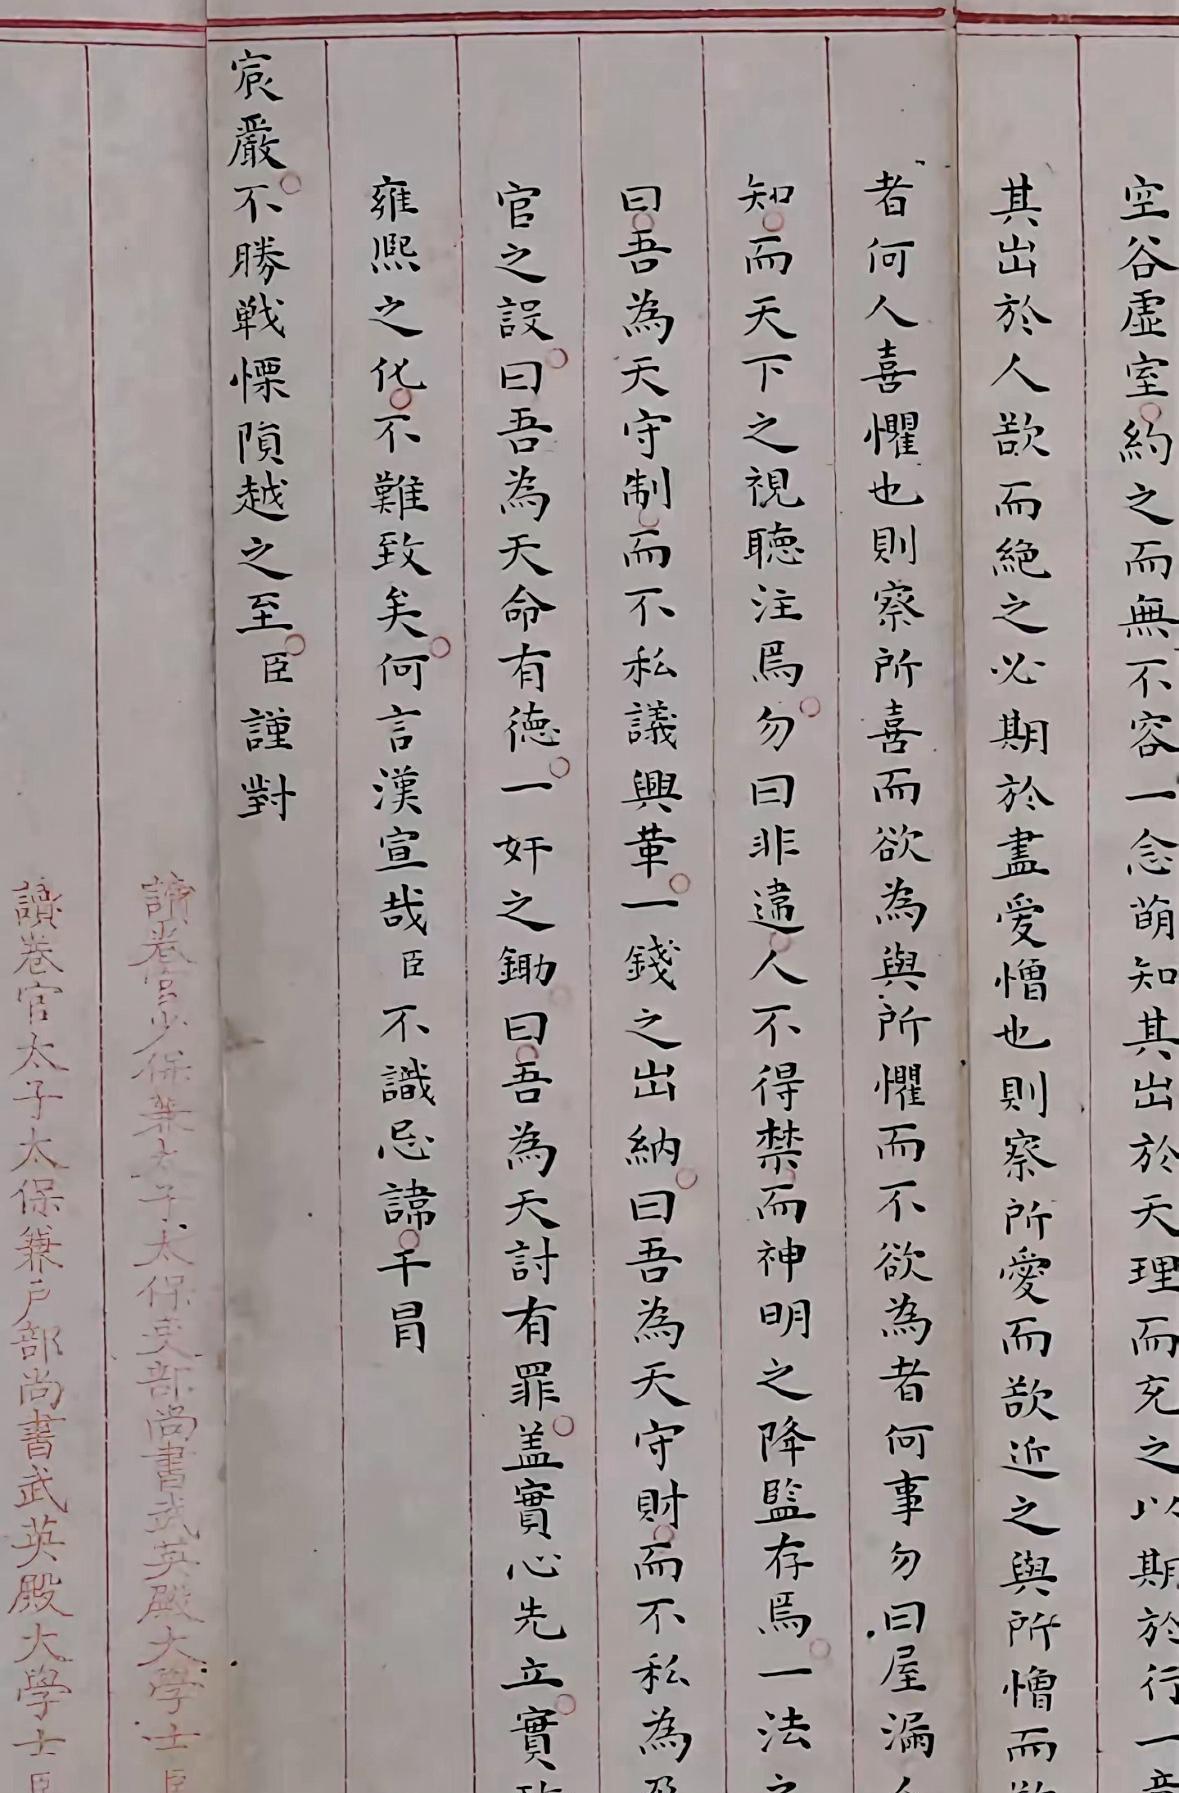 空谷虛室約之而無不容一念萌知其出於天理而充之以期於行一
其出於人欲而絕之必期於盡愛憎也則察所愛而欲近之與所憎而
者何人喜懼也則察所喜而欲為與所懼而不欲為者何事勿曰屋漏
知而天下之視聽注焉勿曰非違人不得禁而神明之降監存焉一法之
曰吾為天守制而不私議興革一錢之出納曰吾為天守財而不私為
官之設曰吾為天命有德一奸之鋤曰吾為天討有罪盖實心先立實
雍熙之化不難致矣何言漢宣哉臣不識忌諱干冒
宸嚴不勝戰慄隕越之至臣謹對
讀卷官少保兼太子太保吏部尚書武英殿大學士臣
讀卷官太子太保兼戶部尚書武英殿大學士臣